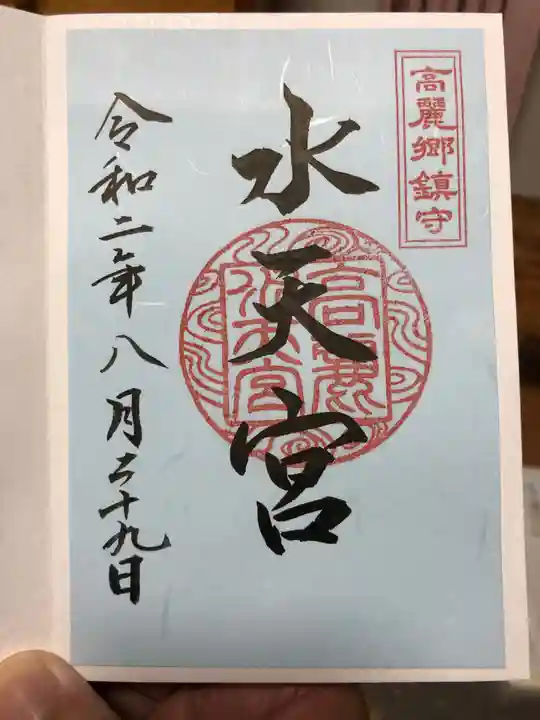 高麗郷鎮守
水天宮
高麗
水天宮
令和二年八月二十九日